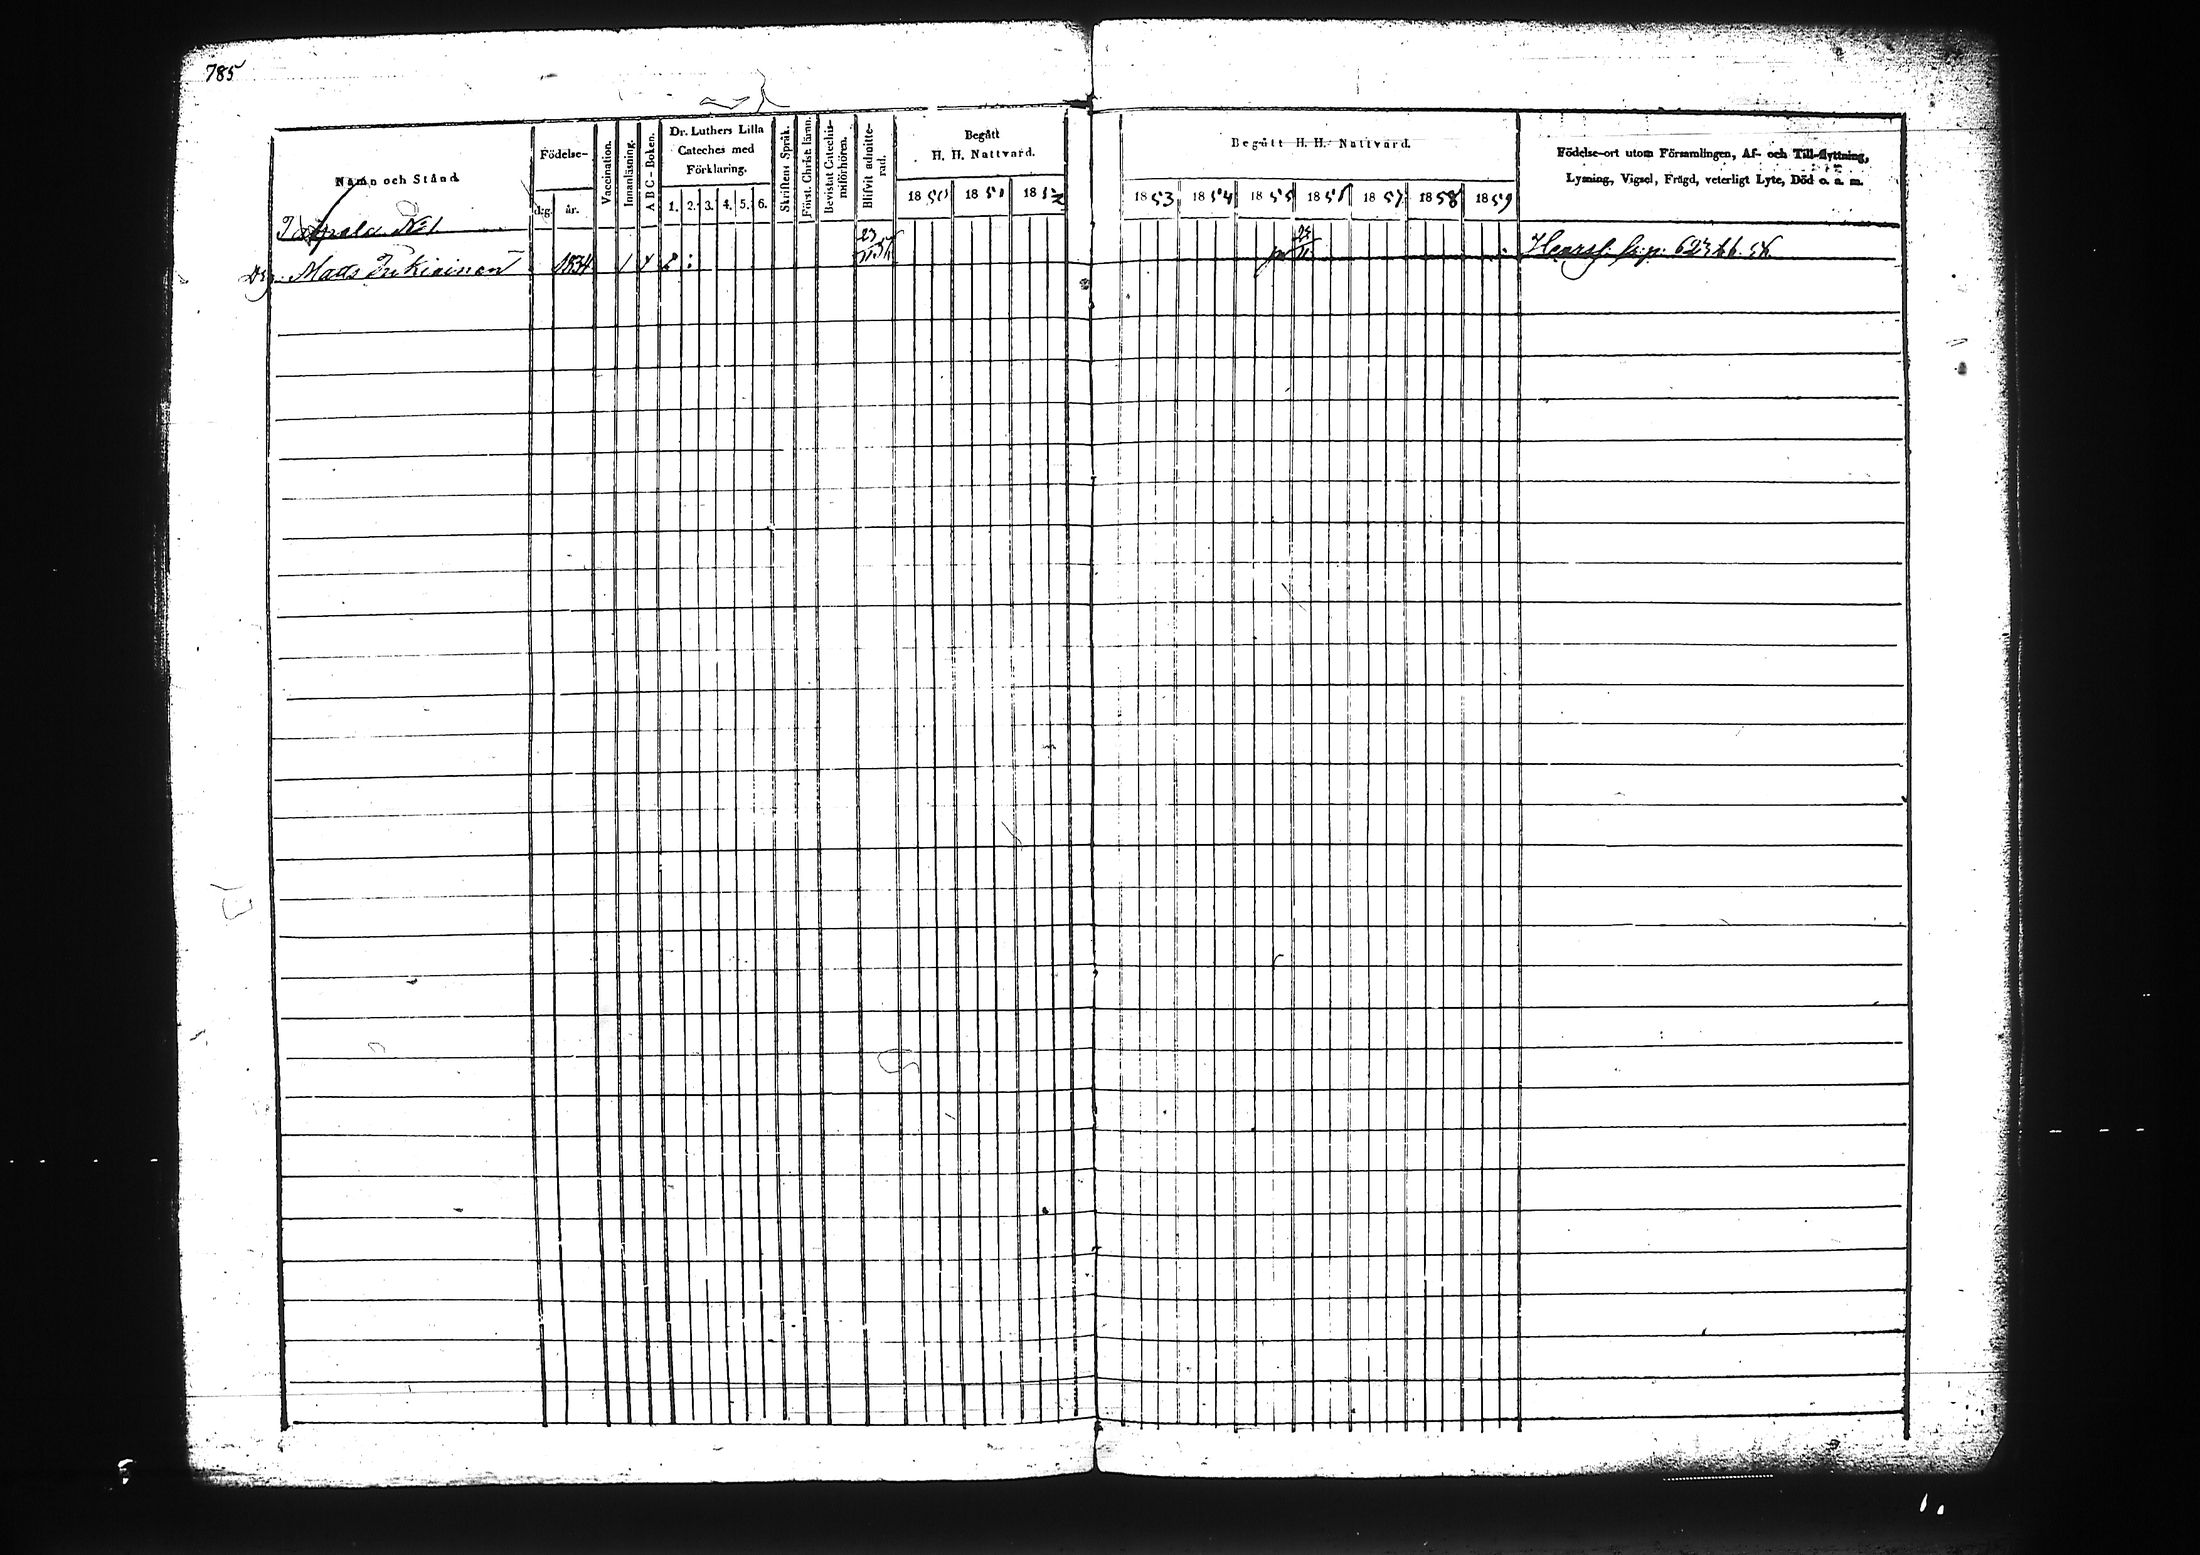 785
Namn och Stånd
Födelse-
dag. år.
Vaccination.
Innanläsning.
A B C - Boken.
Dr. Luthers Lilla
Cateches med
Förklaring.
1. 2. 3. 4. 5. 6.
Skriftens Språk.
Först. Christ. läran.
Bevistat Catechis-
miförhören.
Blifvit admitte-
rad.
Begått
H. H. Nattvard.
1850 1851 1852
Begått H. H. Nattvard.
1853 1854 1855 1856 1857 1858 1859
Födelse-ort utom Församlingen, Af- och Till-flyttning,
Lysning, Vigsel, Frägd, veterligt Lyte, Död o. a. m.
No 1.
Matts 1834